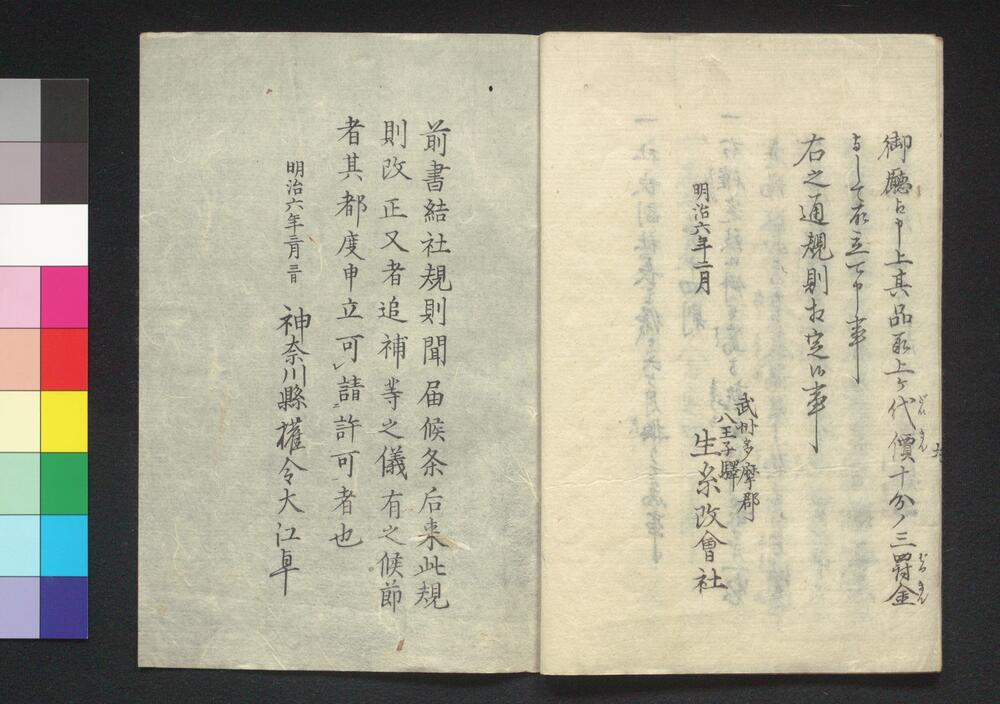 御廳ゟ申上其品取上ケ代價十分ノ三罸金
だい きん
ばつ きん
として取立可申事
右之通規則相定候事
明治六年二月
武州多摩郡
八王子驛
生糸改會社
前書結社規則聞届候条后来此規
則改正又者追補等之儀有之候節
者其都度申立可請許可者也
明治六年二月三日
神奈川縣權令大江卓